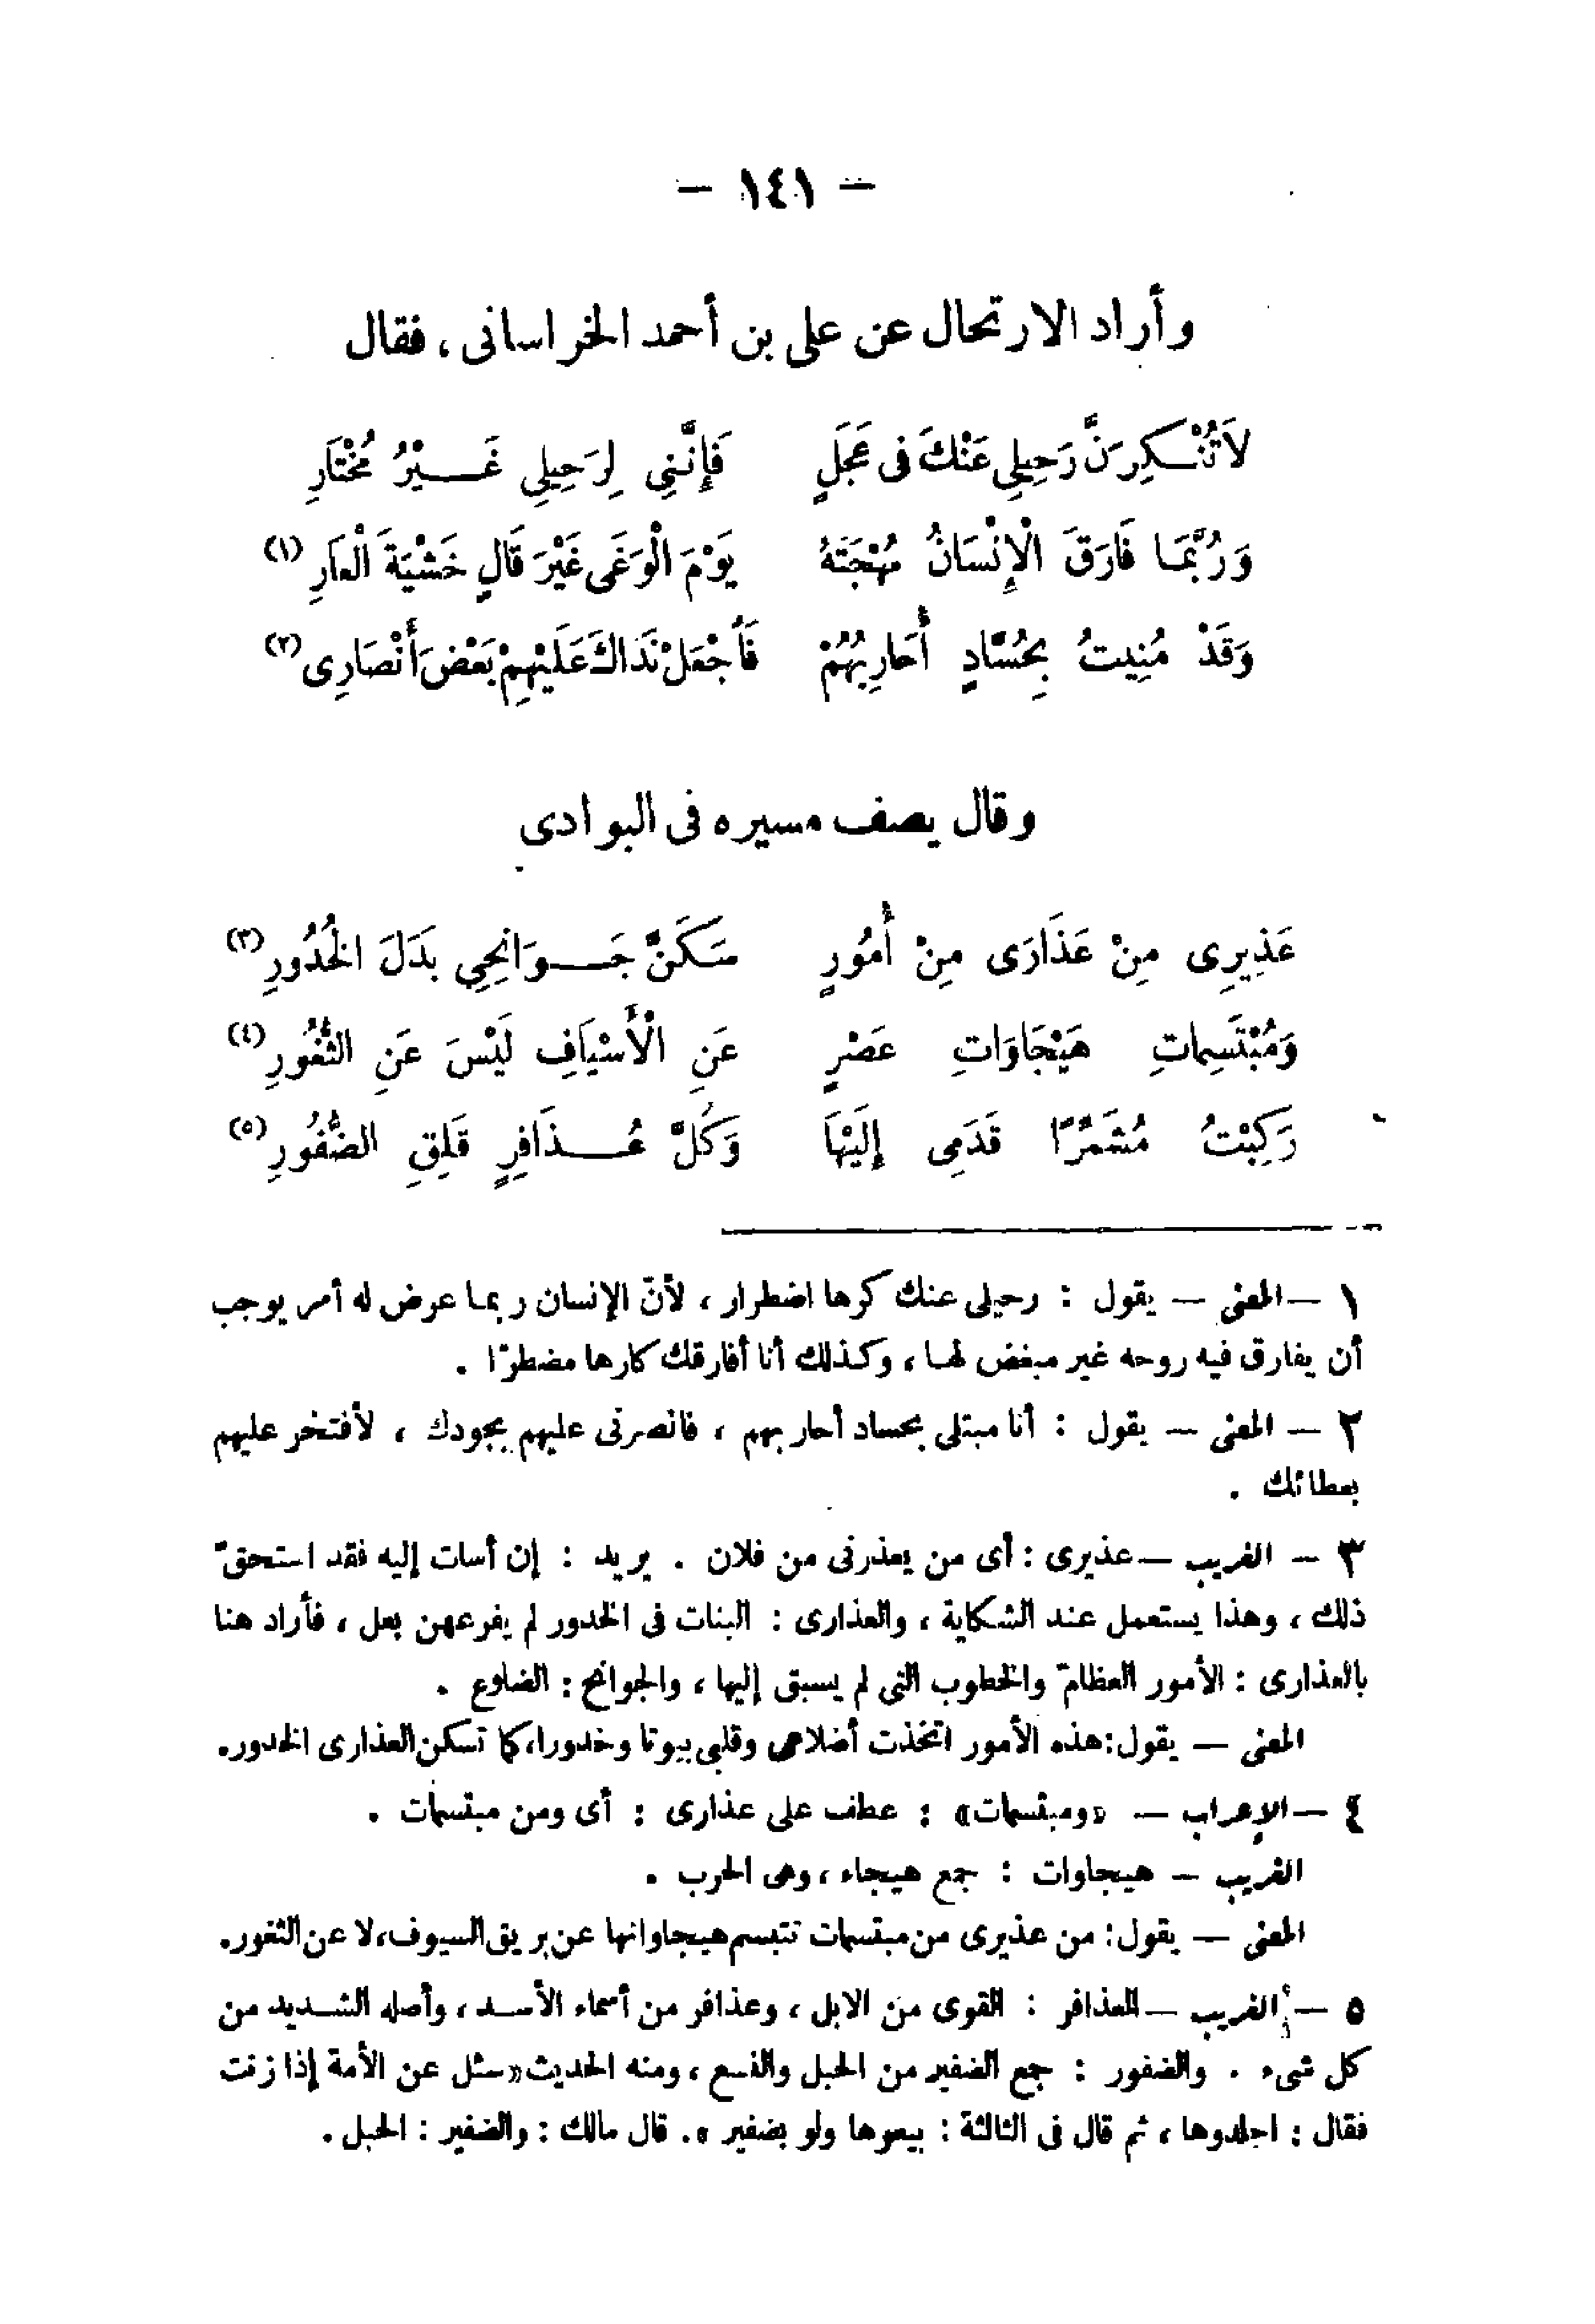 — ١٤١ —
وأراد الارتحال عن على بن أحمد الخراسانى ، فقال
لاَتُنْكِرَنَّ رَحِيلِى عَنْكَ فى عَجَلٍ فَإِنَّنِى لِرَحِيلِى غَيْرُ مُخْتَارِ
وَرُبَّمَا فَارَقَ الْإِنْسَانُ مُهْجَتَهُ يَوْمَ الْوَغَى غَيْرَ قَالٍ خَشْيَةَ الْعَارِ (١)
وَقَدْ مُنِيتُ بِحُسَّادٍ أُحَارِبُهُمْ فَاجْعَلْ نَدَاكَ عَلَيْهِمْ بَعْضَ أَنْصَارِى (٢)
وقال يصف مسيره فى البوادى
عَذِيرِى مِنْ عَذَارَى مِنْ أُمُورٍ سَكَنَّ جَوَانِحِى بَدَلَ الْخُدُورِ (٣)
وَمُبْتَسِمَاتِ هَيْجَاوَاتِ عَصْرٍ عَنِ الْأَسْيَافِ لَيْسَ عَنِ الثُّغُورِ (٤)
رَكِبْتُ مُشَمِّرًا قَدَمِى إِلَيْهَا وَكُلَّ عُذَافِرٍ قَلِقِ الضُّفُورِ (٥)
١ — المعنى — يقول : رحيلى عنك كرها اضطرار ، لأنّ الإنسان ربما عرض له أمر يوجب
أن يفارق فيه روحه غير مبغض لها ، وكذلك أنا أفارقك كارها مضطرّا .
٢ — المعنى — يقول : أنا مبتلى بحساد أحاربهم ، فانصرنى عليهم بجودك ، لأفتخر عليهم
بعطائك .
٣ — الغريب — عذيرى : أى من يعذرنى من فلان . يريد : إن أسات إليه فقد استحقّ
ذلك ، وهذا يستعمل عند الشكاية ، والعذارى : البنات فى الخدور لم يفرعهن بعل ، فأراد هنا
بالعذارى : الأمور العظامّ والخطوب التى لم يسبق إليها ، والجوانح : الضلوع .
المعنى — يقول : هذه الأمور اتخذت أضلاعى وقلبى بيوتا وخدورا، كما تسكن العذارى الخدور.
٤ — الإعراب — «ومبتسمات» : عطف على عذارى : أى ومن مبتسمات .
الغريب — هيجاوات : جمع هيجاء ، وهى الحرب .
المعنى — يقول : من عذيرى من مبتسمات تتبسم هيجاواتها عن بريق السيوف، لا عن الثغور.
٥ — الغريب — العذافر : القوى من الابل ، وعذافر من أسماء الأسد ، وأصله الشديد من
كل شىء . والضفور : جمع الضفير من الحبل والنسع ، ومنه الحديث «سئل عن الأمة إذا زنت
فقال : اجلدوها ، ثم قال فى الثالثة : بيعوها ولو بضفير ». قال مالك : والضفير : الحبل .